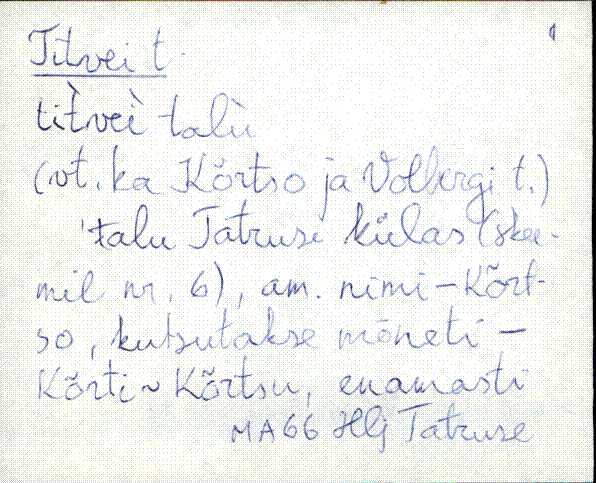 Titvei t.
tìtvei̇̀ talù
(vt. ka Kõrtso ja Volbergi t.)
'talu Tatruse külas (skee-
mil nr. 6), am. nimi - Kõrt-
so, kutsutakse mõneti -
Kõrti ~ Kõrtsu, enamasti
MA66 Hlj Tatruse